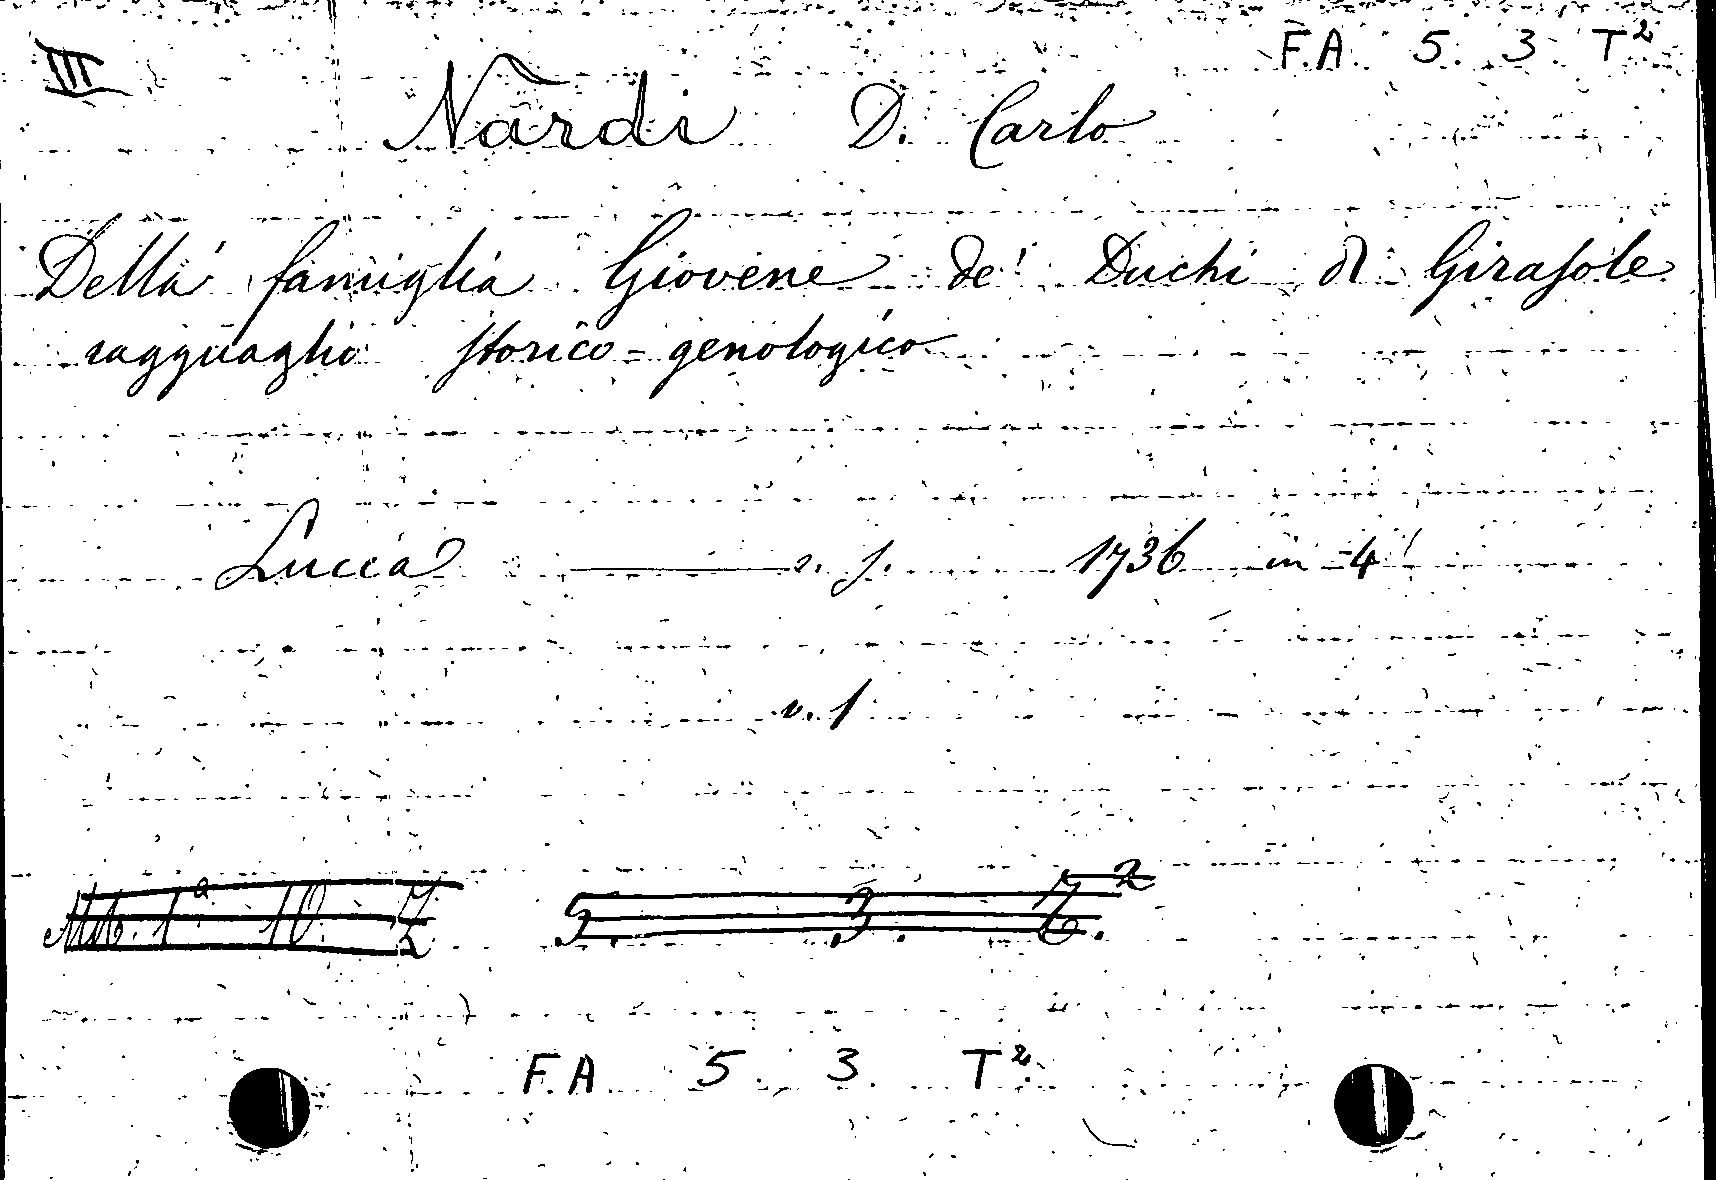 III
F.A. 5. 3. T²
Nardi D. Carlo
Della famiglia Giovene de' Duchi di Girasole
ragguaglio storico-genologico
Lucca ——— s. 1736 in 4
v. 1
5. 3.
F.A. 5. 3. T²